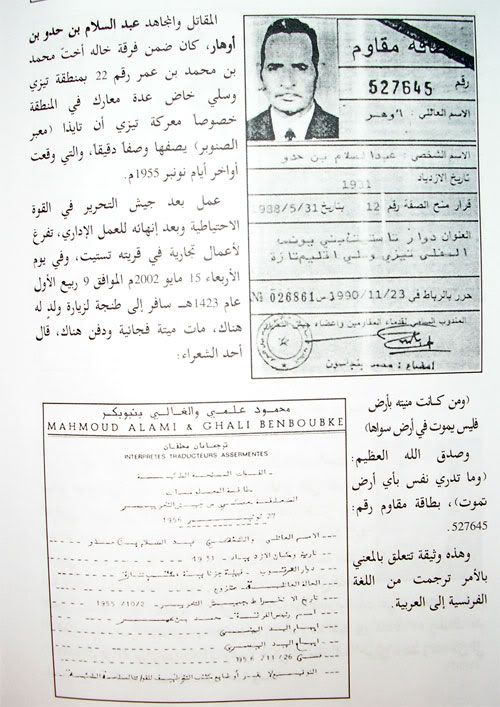 المقاتل والمجاهد عبد السلام بن حدو بن
أوهار، كان ضمن فرقة خاله أخت محمد
بن محمد بن عمر رقم 22 بمنطقة تيزي
وسلي خاض عدة معارك في المنطقة
خصوصا معركة تيزي أن تايذا (معبر
الصنوبر) يصفها وصفا دقيقا، والتي وقعت
أواخر أيام نونبر 1955م.
عمل بعد جيش التحرير في القوة
الاحتياطية وبعد إنهائه للعمل الإداري، تفرغ
لأعمال تجارية في قريته تستيت، وفي يوم
الأربعاء 15 مايو 2002م الموافق 9 ربيع الأول
عام 1423هـ سافر إلى طنجة لزيارة ولدٍ له
هناك، مات ميتة فجائية ودفن هناك، قال
أحد الشعراء:
بطاقة مقاوم
رقم 527645
الاسم العائلي: أوهر
الاسم الشخصي: عبد السلام بن حدو
تاريخ الازدياد 1931
قرار منح الصفة رقم 12 بتاريخ 1988/5/31
العنوان دوار تاستفتاشتي
السفلى تيزي وسلي اقليم تازة
حرر بالرباط في 1990/11/23 ص 026861 №
المندوب السامي لقدماء المقاومين وأعضاء جيش التحرير
امضاء: محمد بنجلسون
(ومن كانت منيته بأرض
فليس يموت في أرض سواها)
وصدق الله العظيم:
(وما تدري نفس بأي أرض
تموت)، بطاقة مقاوم رقم:
527645.
وهذه وثيقة تتعلق بالمعني
بالأمر ترجمت من اللغة
الفرنسية إلى العربية.
محمود علمي والغالي بنبوبكر
MAHMOUD ALAMI & GHALI BENBOUBKE
ترجمانان محلفان
INTERPRETES TRADUCTEURS ASSERMENTES
القوات المسلحة الملكية
1956
الاسم العائلي والشخصي: عبد السلام بن حدو
تاريخ ومكان الازدياد: 1931
الحالة العائلية: متزوج
تاريخ الانخراط بجيش التحرير: 1955/10/2
ابهام اليد اليمنى
ابهام اليد اليسرى
1956/11/26